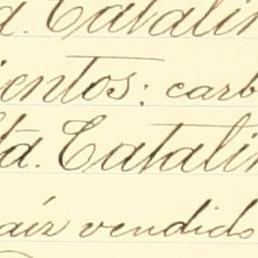 a. Catalin
ientos: carb
ta. Catalin
aíz vendido